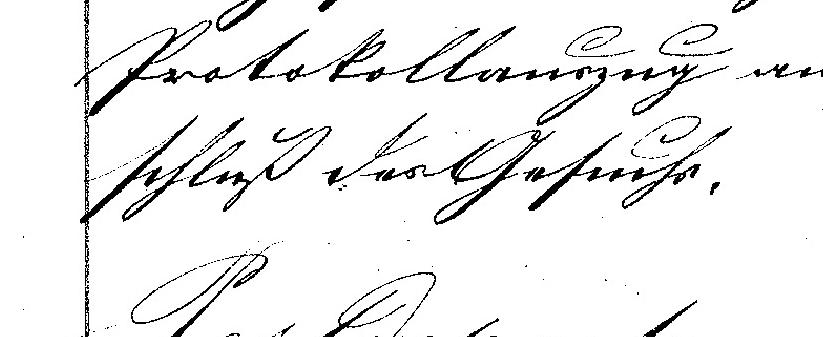 Protokollauszug an
schluß des Gesuchs.